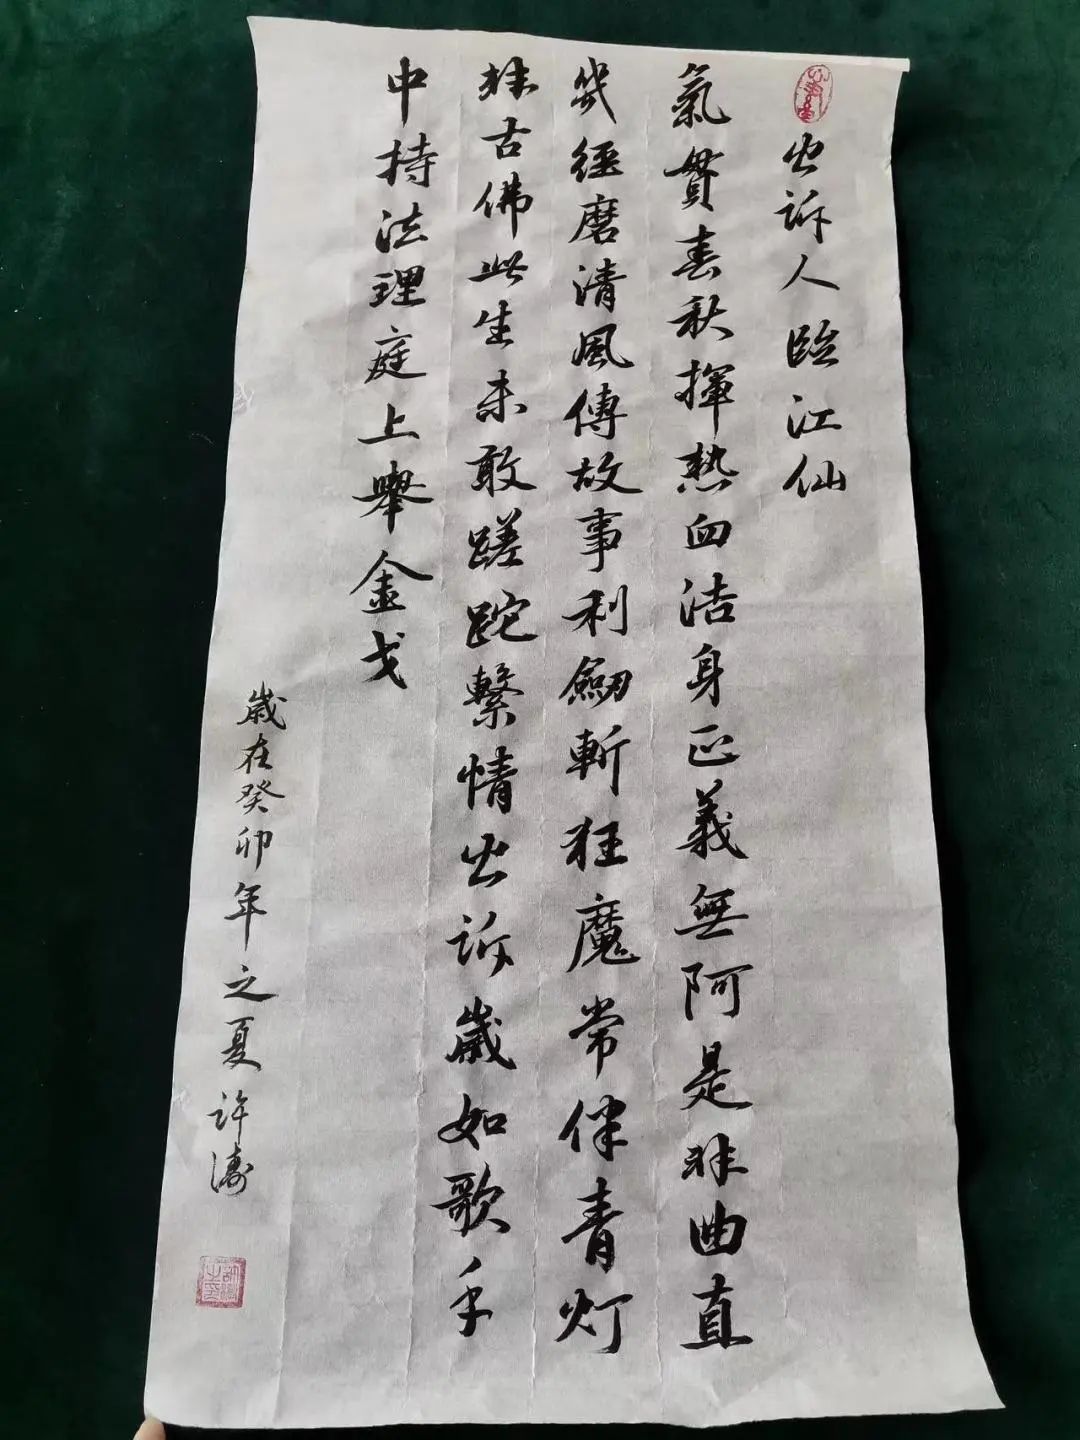 公訴人 臨江仙
氣貫春秋揮熱血洁身正義無阿是非曲直
幾經磨清風傳故事利劒斬狂魔常伴青灯
非古佛此生未敢蹉跎繫情公訴歲如歌手
中持法理庭上舉金戈
歲在癸卯年之夏 許濤